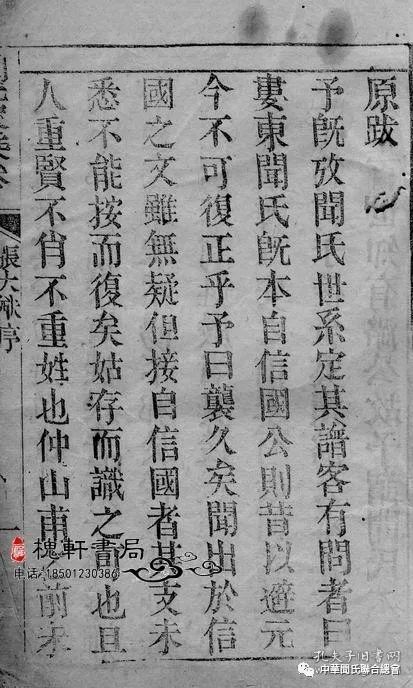 原跋
予旣攷聞氏世系定其譜客有問者曰
婁東聞氏旣本自信國公則昔以避元
今不可復正乎予曰襲久矣聞出於信
國之文雖無疑但接自信國者其支未
悉不能按而復矣姑存而識之也且
人重賢不肖不重姓也仲山甫之前未
張大猷序
槐軒書局
电话:18501230386
孔夫子旧书网
中華聞氏聯合總會